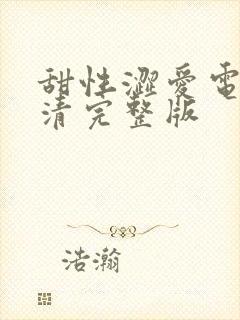 甜性澀愛電
清完整版
浩瀚